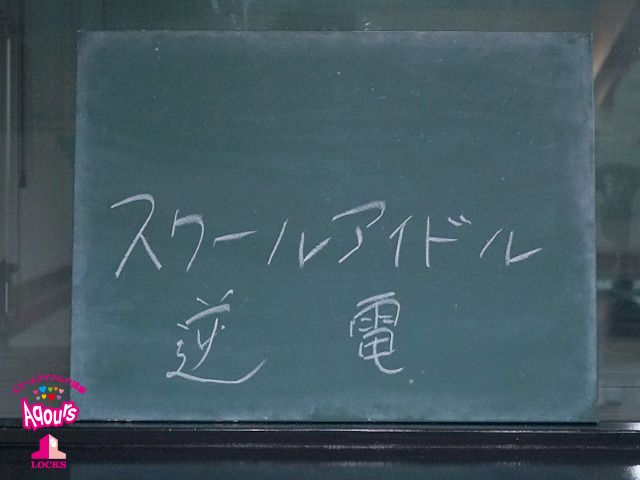 スクールアイドル
逆 電
Aqours
LOCKS